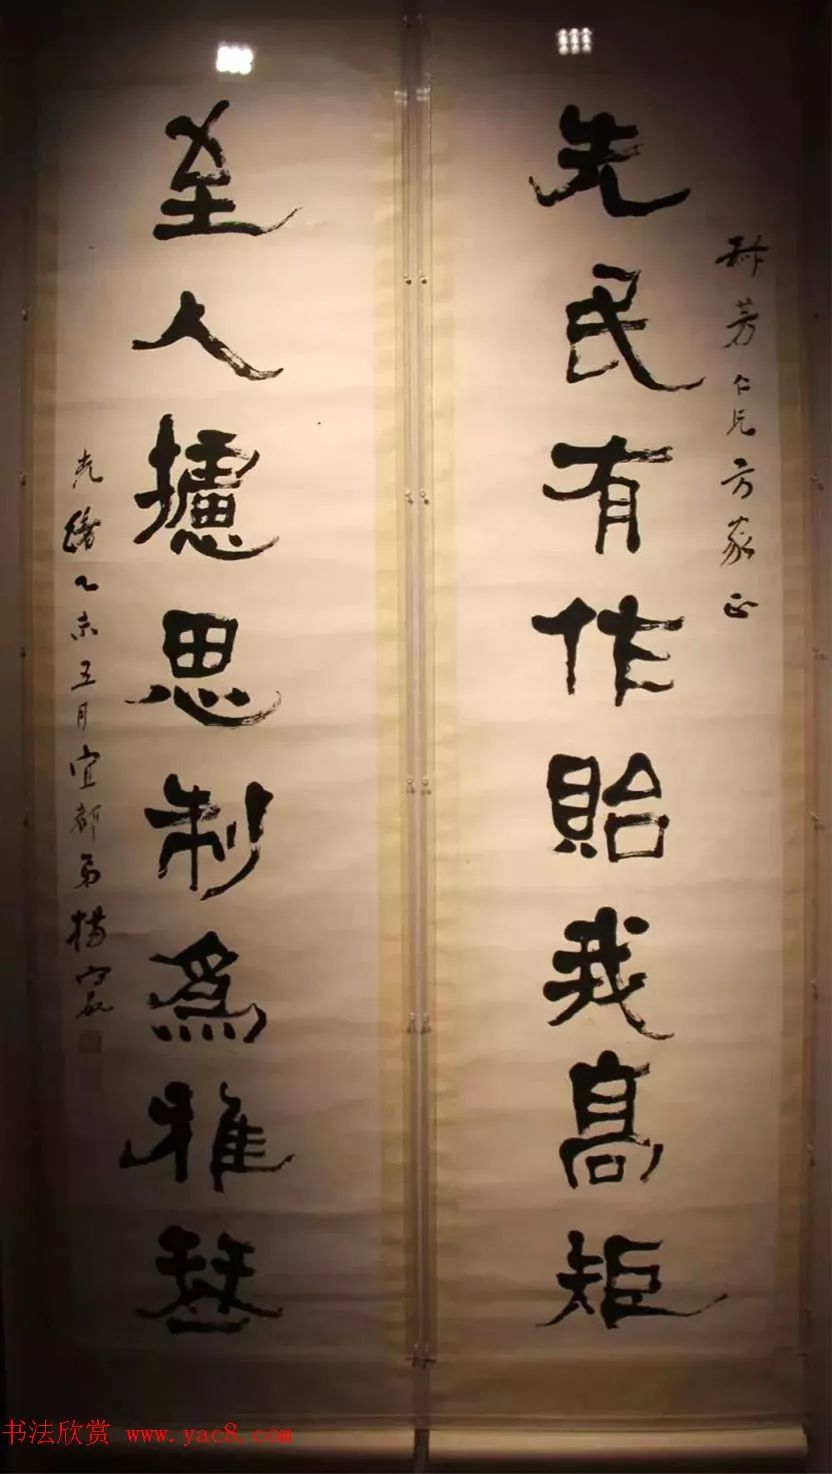 芳仁兄方家正
先民有作貽我髙矩
至人攄思制爲雅琴
光緒乙未五月宜都弟楊守敬
书法欣赏 www.yac8.com